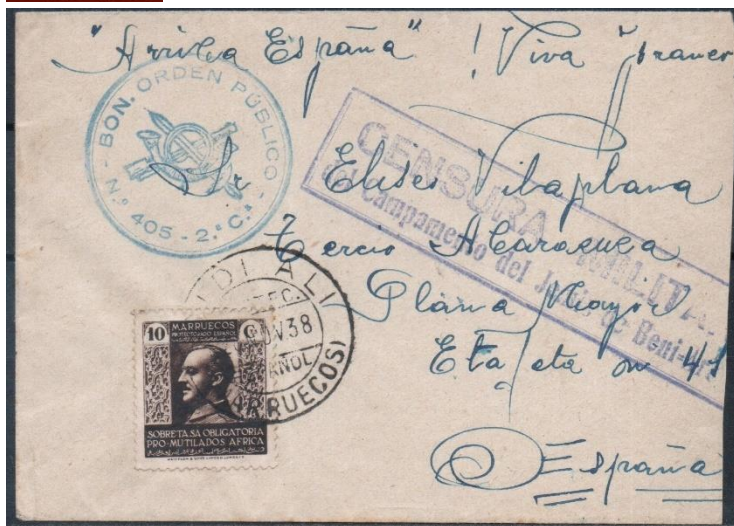 "Arriba España" ! Viva Franco
BON. ORDEN PÚBLICO
N.º 405 - 2.ª C.ª
CENSURA MILITA
Campamento del de Beni-
Sr Elises Vilaplana
Tercio
Plana Mayor
Estafeta nº 41
España
DI ALI
V 38
ÑOL
ARRUECOS)
10 MARRUECOS C
PROTECTORADO ESPAÑOL
SOBRETASA OBLIGATORIA
PRO-MUTILADOS AFRICA